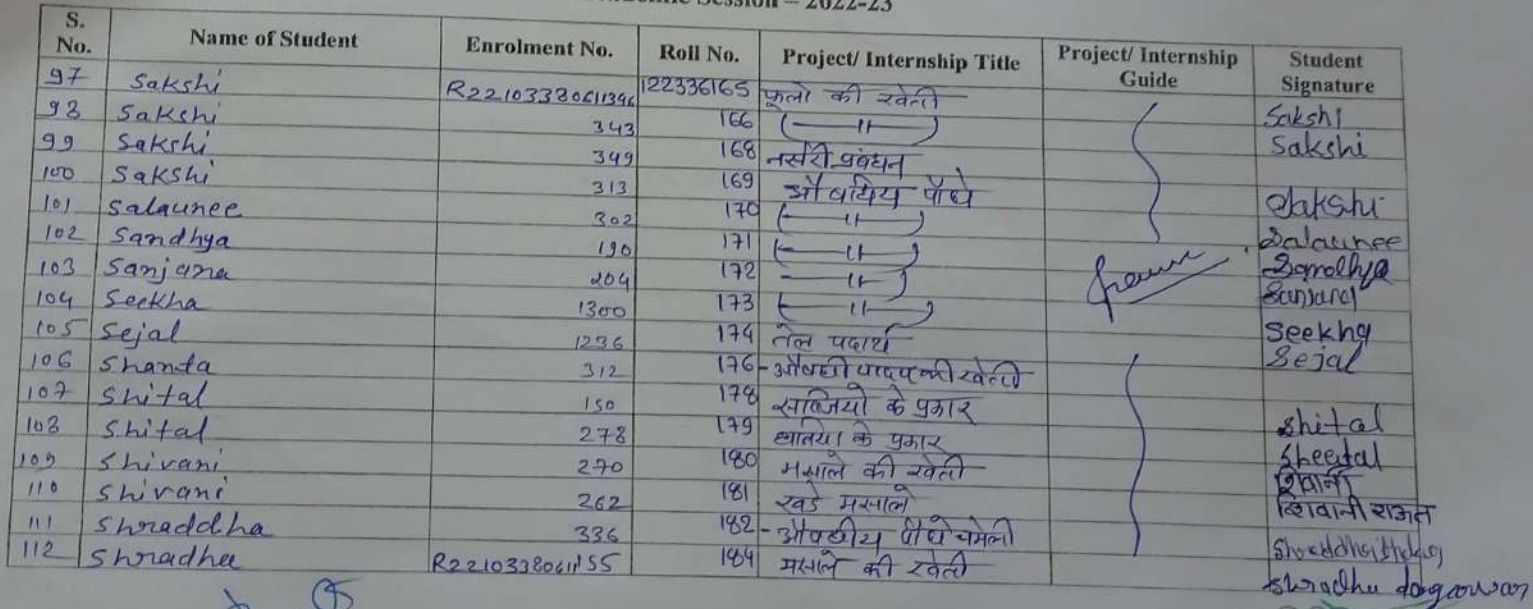 Session – 2022-23
S. No. Name of Student Enrolment No. Roll No. Project/ Internship Title Project/ Internship Guide Student Signature
97 Sakshi R22103380611396 122336165 फूलो की खेती Sakshi
98 Sakshi 343 166 (—〃—) Sakshi
99 Sakshi 349 168 नर्सरी प्रबंधन
100 Sakshi 313 169 औषधिय पौधे Sakshi
101 Salaunee 302 170 (—〃—) Salaunee
102 Sandhya 190 171 (—〃—) Sandhya
103 Sanjana 204 172 〃 Sanjana
104 Seekha 1300 173 (—〃—) Seekha
105 Sejal 1236 174 तेल पदार्थ Sejal
106 Shanta 312 176 औषधी पादप की खेती
107 Shital 150 178 सब्जियो के प्रकार Shital
108 Shital 278 179 के प्रकार Sheetal
109 Shivani 270 180 मसाले की खेती शिवानी
110 Shivani 262 181 खडे मसाले शिवानी राऊत
111 Shraddha 336 182 औषधीय पौधे चमेली
112 Shradha R2210338061155 184 मसाले की खेती Shradha dongarwar